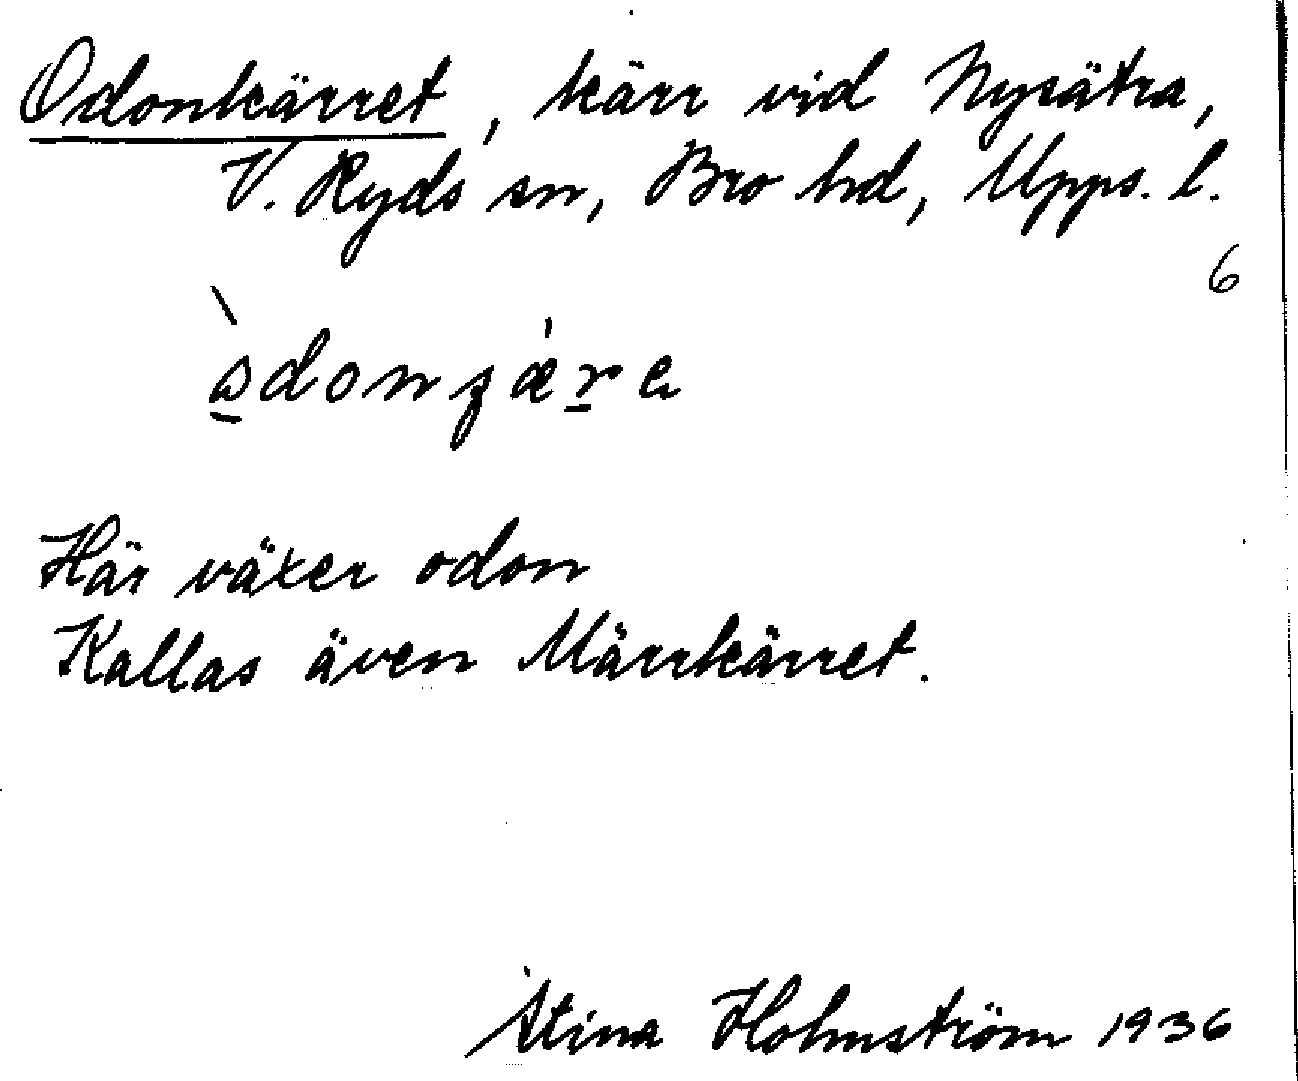 Odonkärret, kärr vid Nysätra,
V. Ryds sn, Bro hd, Upps. l.
6
Här växer odon
Kallas även Märrkärret.
Stina Holmström 1936